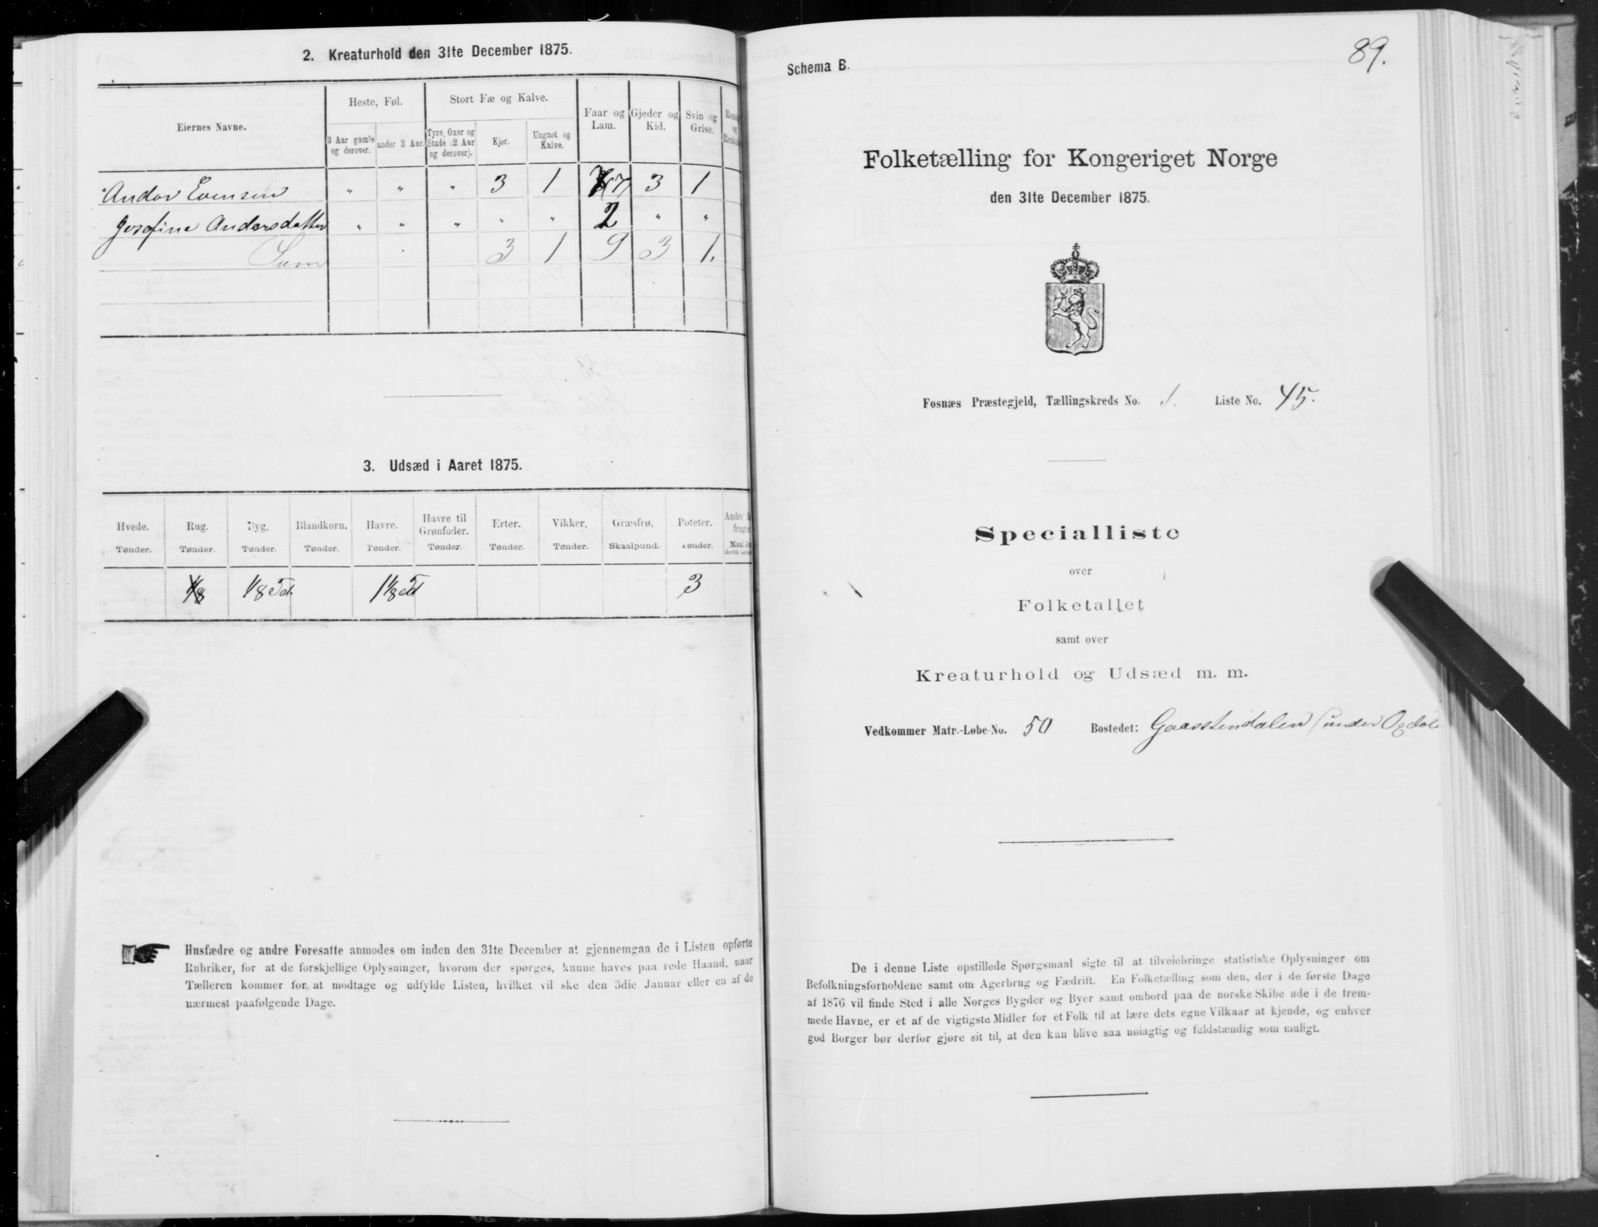 2. Kreaturhold den 31te December 1875.
Eiernes Navne.
Heste, Føl.
Stort Fæ og Kalve.
Faar og Lam.
Gjeder og Kid.
Svin og Grise.
3 Aar gamle og derover.
under 3 Aar.
Tyre, Oxer og Stude (2 Aar og derover).
Kjør.
Ungnøt og Kalve.
Andor Evensen " " " 3 1 7 3 1
Josefine Andersdatter " " " " " 2 " "
Sum 3 1 9 3 1.
3. Udsæd i Aaret 1875.
Hvede. Rug. Byg. Blandkorn. Havre. Havre til Grønfoder. Erter. Vikker. Græsfrø. Poteter.
Tønder. Tønder. Tønder. Tønder. Tønder. Tønder. Tønder. Tønder. Skaalpund. Tønder.
1/8 1/8 Td. 1 1/8 Td 3
Husfædre og andre Foresatte anmodes om inden den 31te December at gjennemgaa de i Listen opførte
Rubriker, for at de forskjellige Oplysninger, hvorom der spørges, kunne haves paa rede Haand, naar
Tælleren kommer for at modtage og udfylde Listen, hvilket vil ske den 3die Januar eller en af de
nærmest paafølgende Dage.
Schema B.
89.
Folketælling for Kongeriget Norge
den 31te December 1875.
Fosnæs Præstegjeld, Tællingskreds No. 1. Liste No. 45.
Specialliste
over
Folketallet
samt over
Kreaturhold og Udsæd m. m.
Vedkommer Matr.-Løbe-No. 50 Bostedet: Gaasstendalen (under Opdal
De i denne Liste opstillede Spørgsmaal sigte til at tilveiebringe statistiske Oplysninger om
Befolkningsforholdene samt om Agerbrug og Fædrift. En Folketælling som den, der i de første Dage
af 1876 vil finde Sted i alle Norges Bygder og Byer samt ombord paa de norske Skibe ude i de frem-
mede Havne, er et af de vigtigste Midler for et Folk til at lære dets egne Vilkaar at kjende, og enhver
god Borger bør derfor gjøre sit til, at den kan blive saa nøiagtig og fuldstændig som muligt.